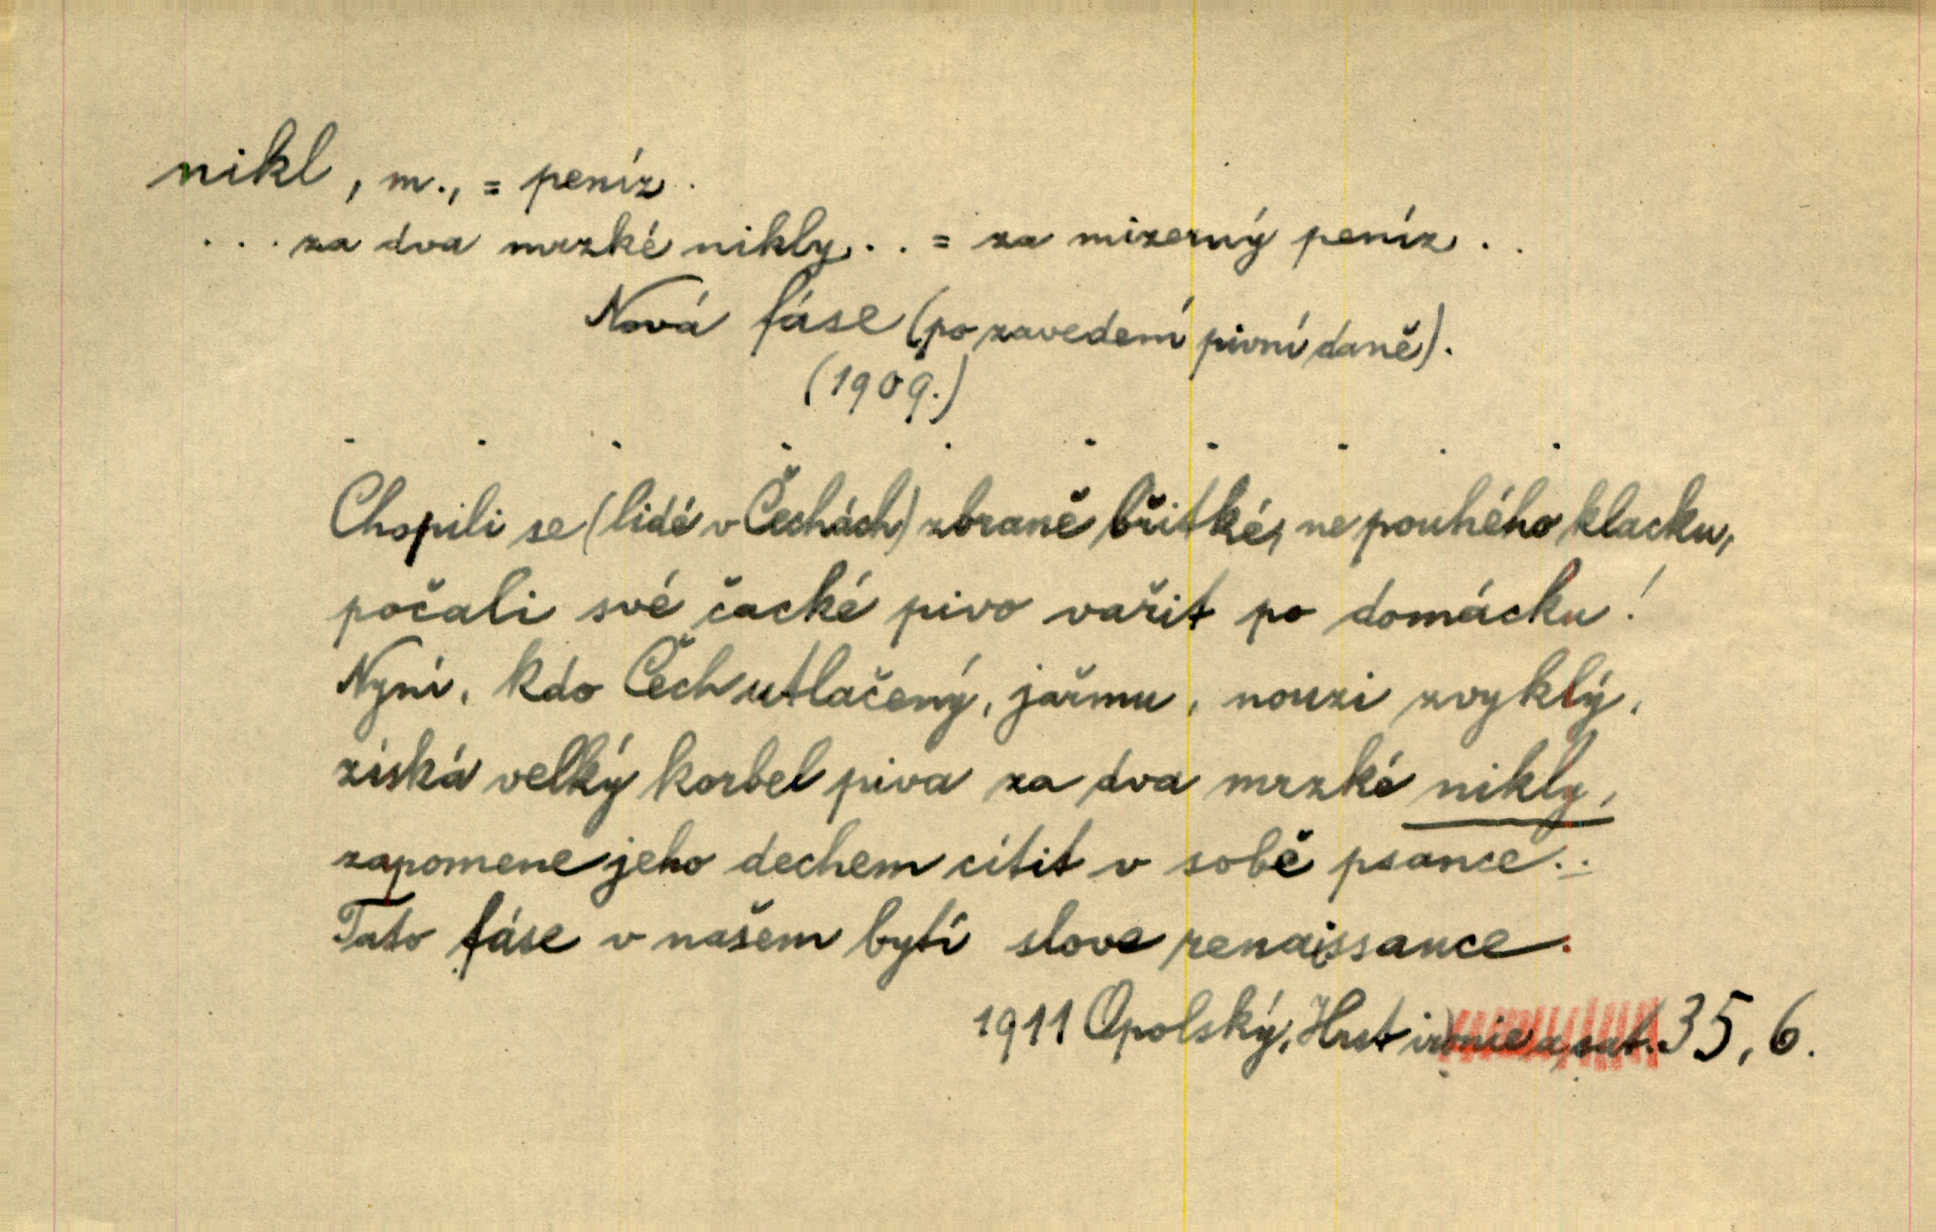 nikl, m., = peníz.
... za dva mrzké nikly.. = za mizerný peníz..
Nová fáse (po zavedení pivní daně).
(1909.)
. . . . . . . . . .
Chopili se (lidé v Čechách) zbraně břitké, ne pouhého klacku,
počali své čacké pivo vařit po domácku!
Nyní, kdo Čech utlačený, jařmu, nouzi zvyklý,
získá velký korbel piva za dva mrzké nikly,
zapomene jeho dechem cítit v sobě psance...
Tato fáse v našem bytí slove renaissance.
1911 Opolský, Hrst ironie a sat. 35, 6.